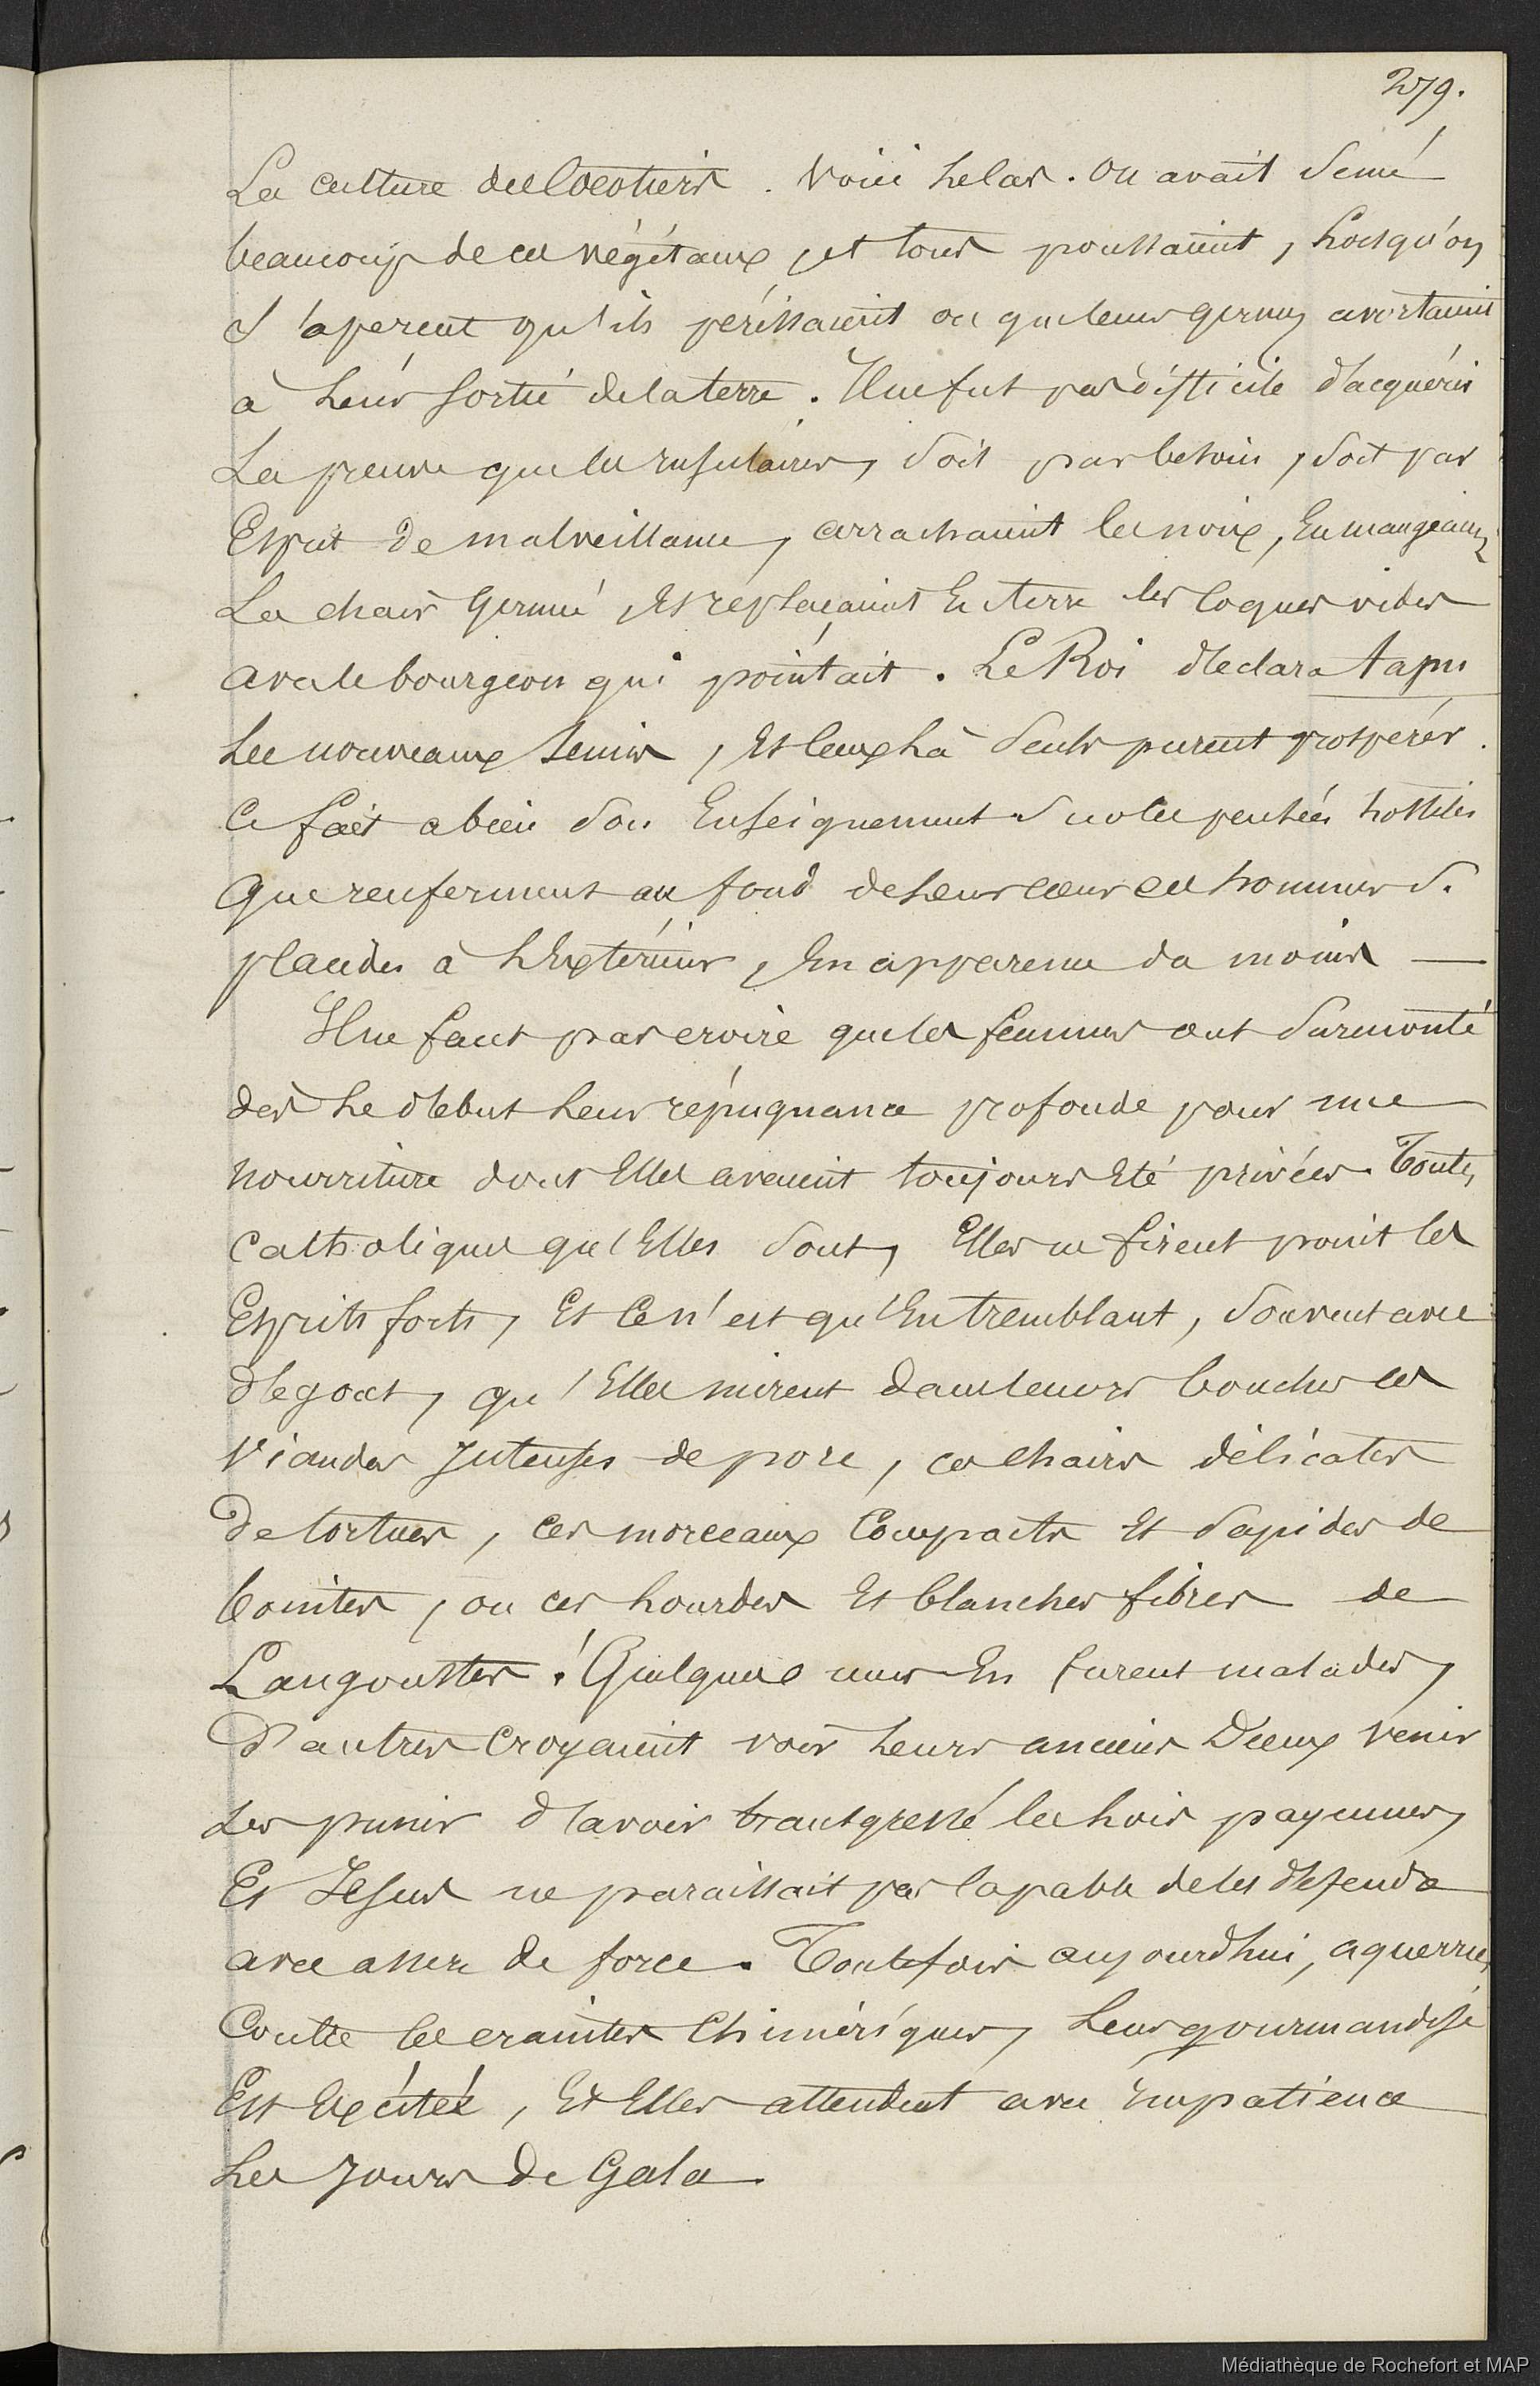 279.
La culture des Cocotiers. Voici helas. On avait semé
beaucoup de ces végétaux, et tous poussaient, Lorsqu'on
s'aperçut qu'ils périssaient ou que leurs germes avortaient
à Leur sortie de la terre. Il ne fut pas difficile d'acquérir
La preuve que les insulaires, soit par besoin, soit par
Esprit de malveillance, arrachaient les noix, En mangeaient
La chair Germée, Et replaçaient En terre les coques vides
avec le bourgeon qui pointait. Le Roi declara tapu
Les nouveaux semis, Et Ceux là seuls purent prospérer.
Ce fait a bien son Enseignement sur les pensées hostiles
Que renferment au fond de Leur cœur ces hommes si
placides à L'Extérieur, En apparence du moins —
Il ne faut pas croire que les femmes ont surmonté
dès Le debut Leur répugnance profonde pour une
Nourriture dont Elles avaient toujours Eté privées. Toutes
Catholiques qu'Elles sont, Elles ne firent point les
Esprits forts, Et Ce n'est qu'En tremblant, souvent avec
degout, qu'Elles mirent dans leurs bouches ces
Viandes Juteuses de porc, ces chairs délicates
De tortues, ces morceaux Compacts Et sapides de
bonites, ou ces Lourdes Et blanches fibres de
Langoustes! Quelques unes En furent malades,
D'autres Croyaient voir Leurs anciens Dieux venir
Les punir d'avoir transgressé les Lois payennes,
Et Jesus ne paraissait pas Capable de les defendre
avec assez de force. Toutefois aujourdhui, aguerries
Contre les craintes Chimériques, Leur gourmandise
Est Excitée, Et Elles attendent avec impatience
Les Jours de Gala.
Médiathèque de Rochefort et MAP